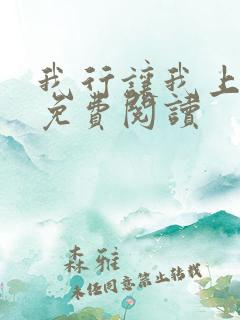 我行讓我上
免費閱讀
森雅
未经同意禁止转载